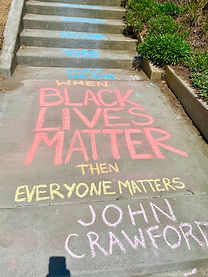 WHEN
BLACK
LIVES
MATTER
THEN
EVERYONE MATTERS
JOHN
CRAWFORD